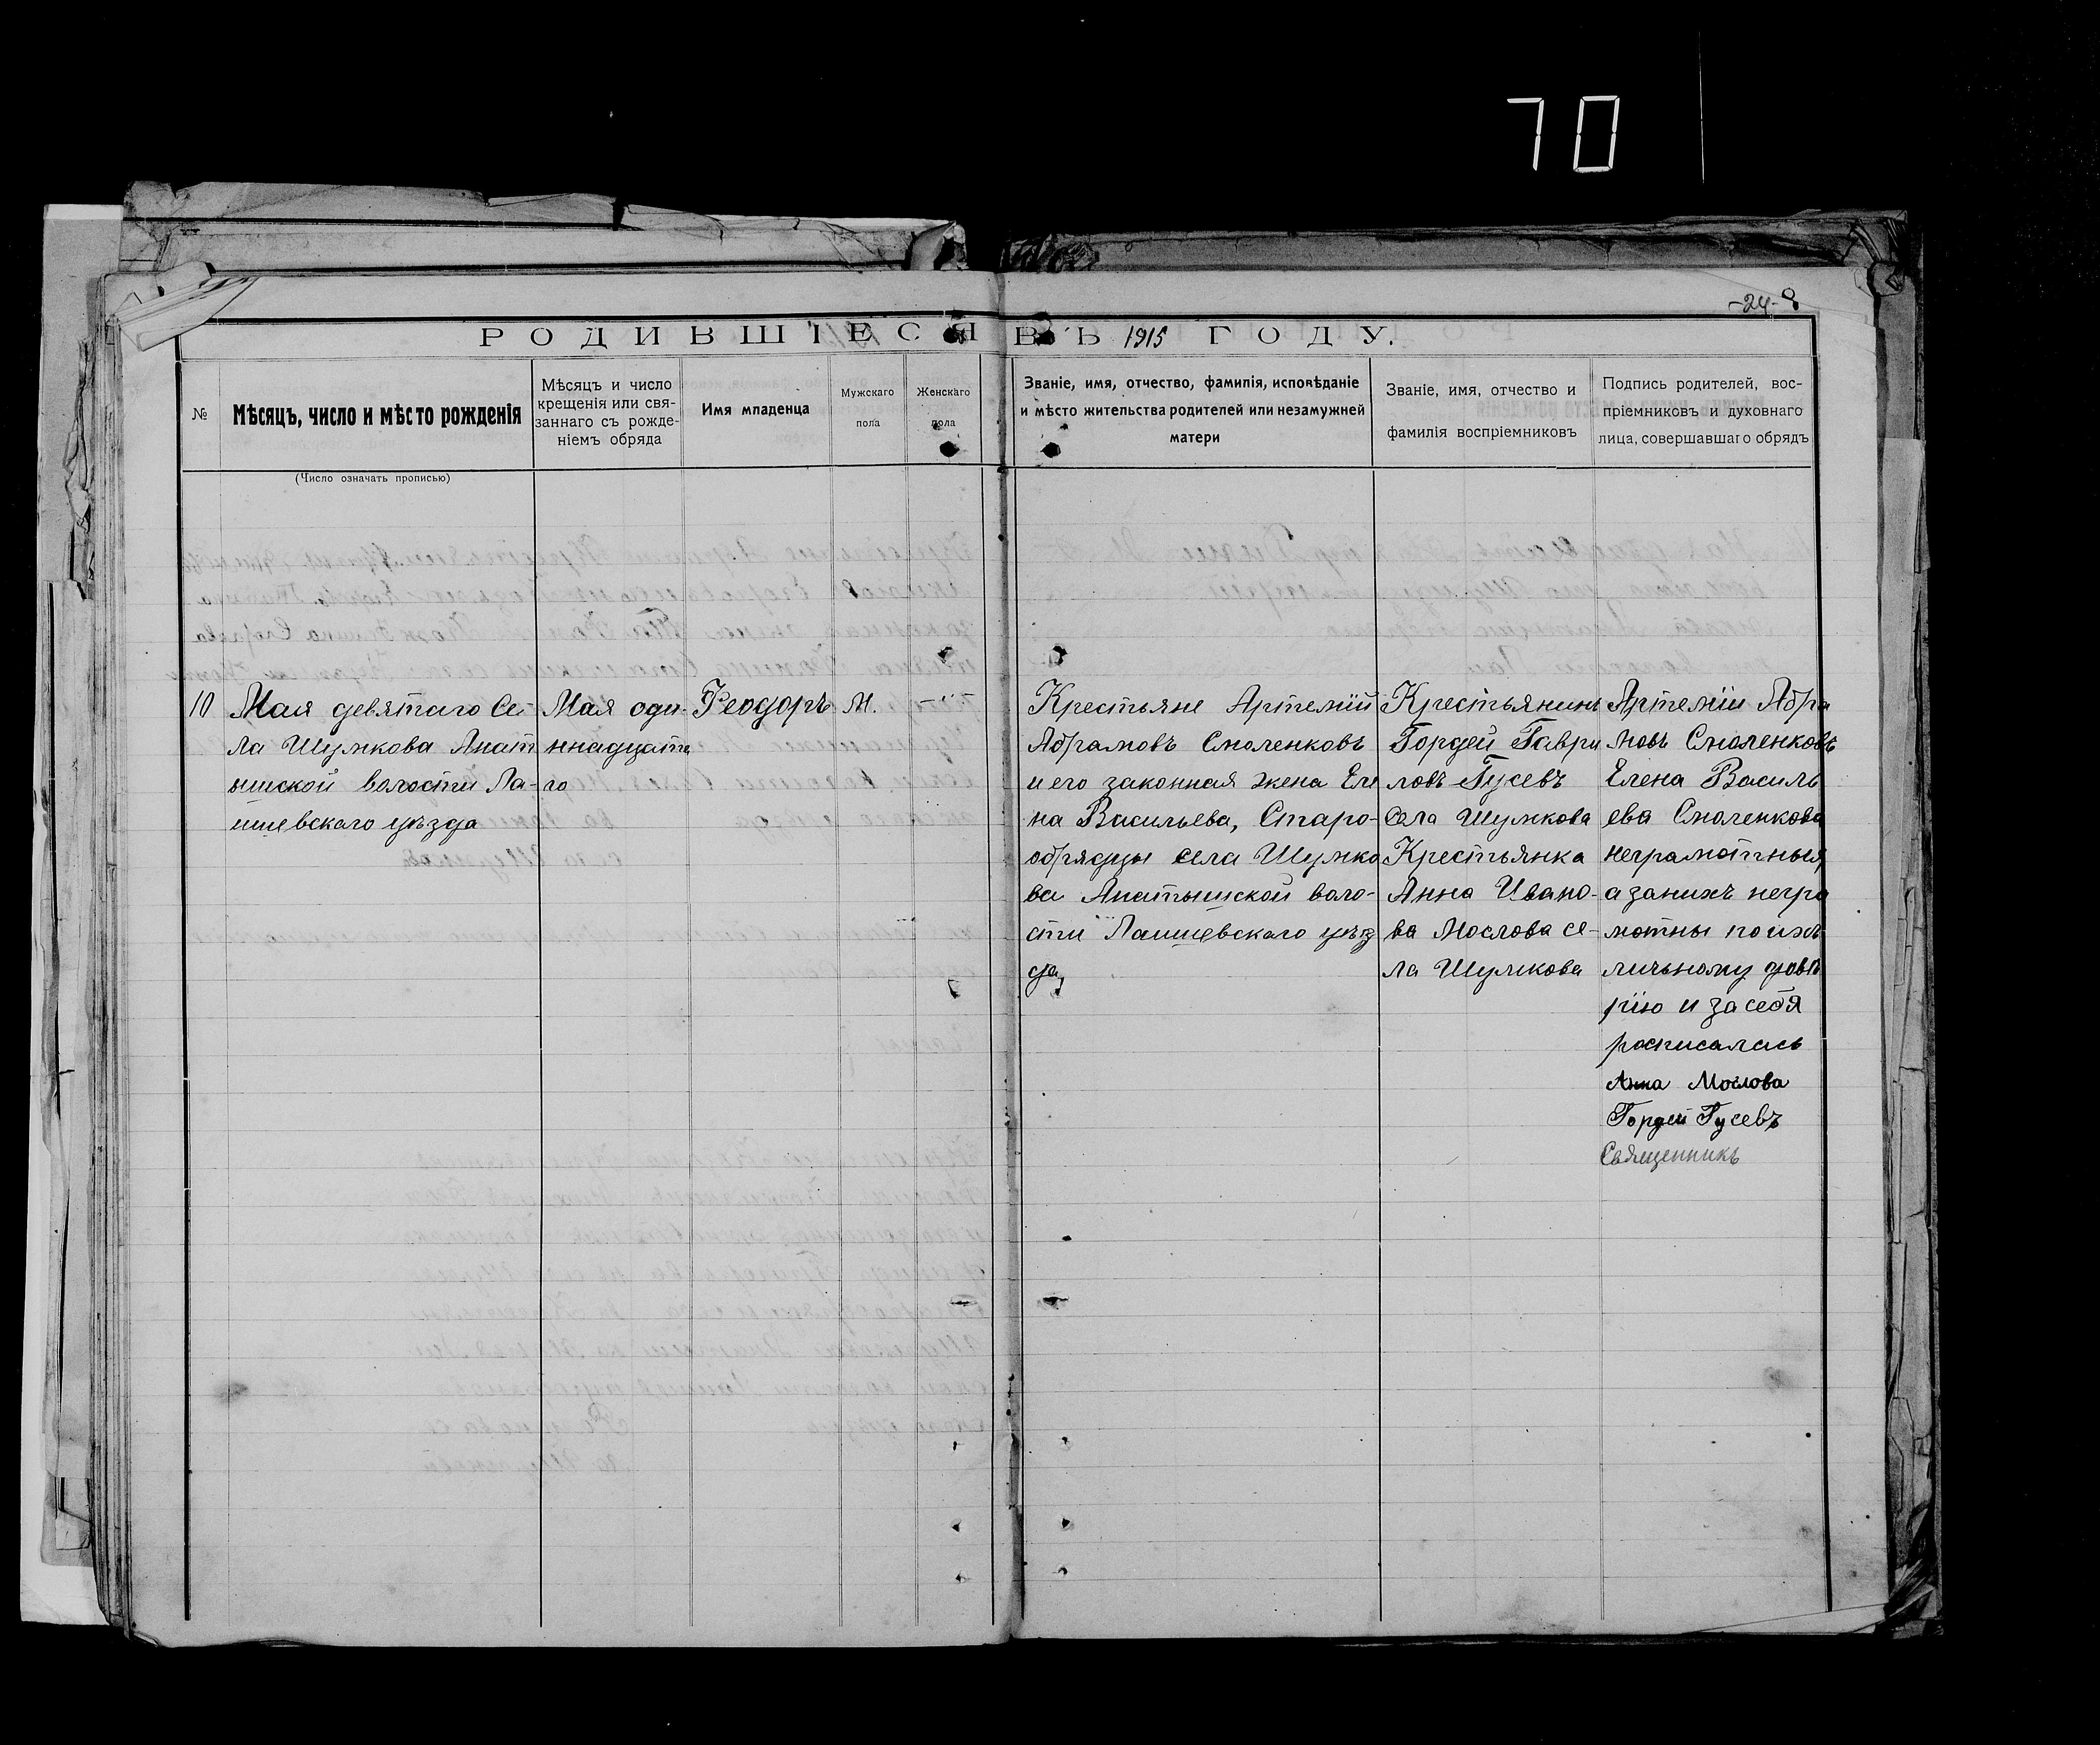 70
-24- 8
РОДИВШІЕСЯ ВЪ 1915 ГОДУ.
№
Мѣсяцъ, число и мѣсто рожденія
Мѣсяцъ и число
крещенія или свя-
заннаго съ рожде-
ніемъ обряда
Имя младенца
Мужскаго
пола
Женскаго
пола
Званіе, имя, отчество, фамилія, исповѣданіе
и мѣсто жительства родителей или незамужней
матери
Званіе, имя, отчество и
фамилія воспріемниковъ
Подпись родителей, вос-
пріемниковъ и духовнаго
лица, совершавшаго обрядъ
(Число означать прописью)
10
Мая девятаго Се-
ла Шумкова Анат
ышской волости Ла-
ишевскаго уѣзда
Мая оди-
ннадцата
го
Феодоръ
М.
Крестьяне Артемій
Абрамовъ Смоленковъ
и его законная жена Еле
на Васильева, Старо-
обрядцы села Шумко
ва Анатышской воло-
сти Лаишевскаго уѣз
да,
Крестьянинъ
Гордей Гаври
ловъ Гусевъ
села Шумкова
Крестьянка
Анна Ивано-
ва Мослова се-
ла Шумкова
Артемій Абра
мовъ Смоленковъ
Елена Василь
ева Смоленкова
неграмотныя,
а занихъ негра
мотны по ихъ
личьному довѣ
рію и за себя
росписалась
Анна Мослова
Гордей Гусевъ
Священникъ